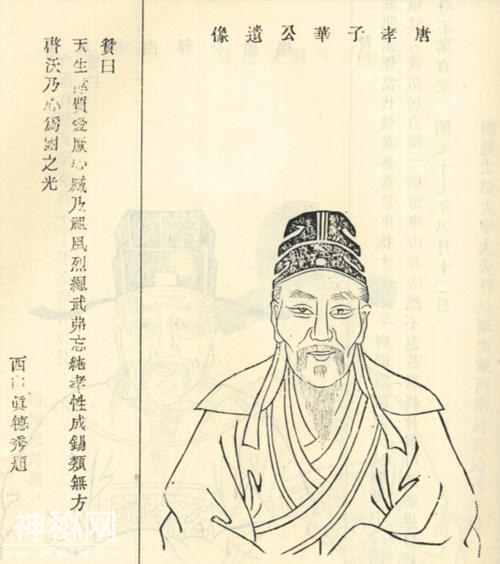 唐孝子華公遺像
贊曰
天生質愛厥心臧乃祖風烈繩武弗忘純孝性成錫類無方
啓沃乃心為國之光
西山眞德秀題
神秘网